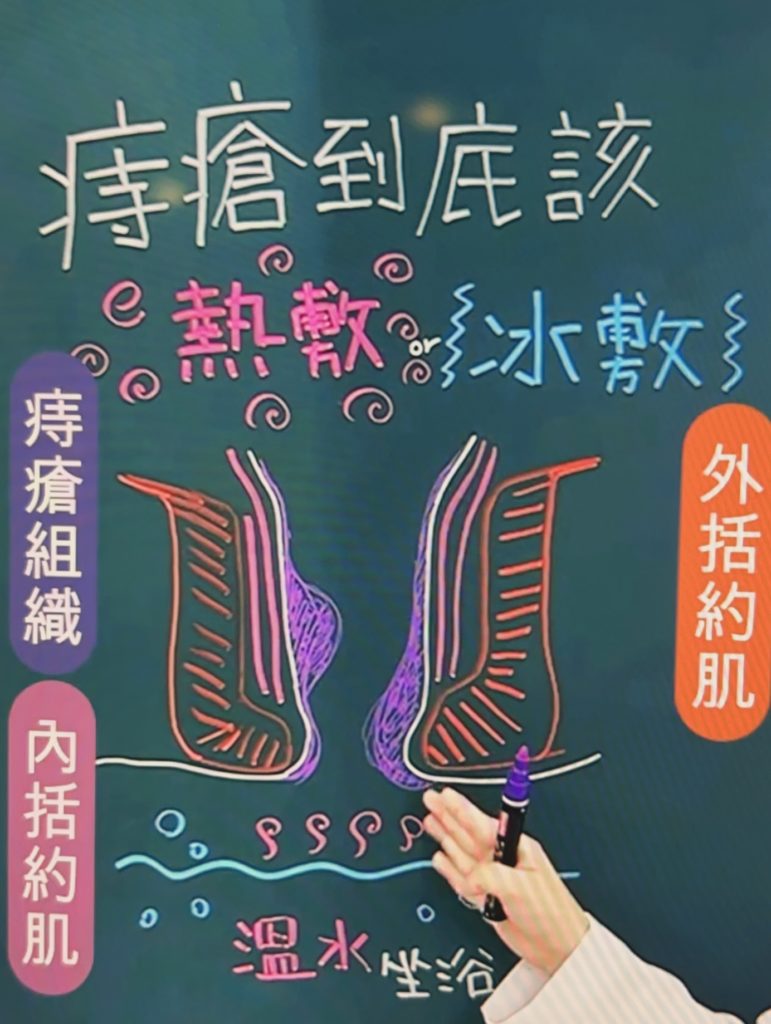 痔瘡到底該
熱敷or冰敷
痔瘡組織
外括約肌
內括約肌
溫水坐浴